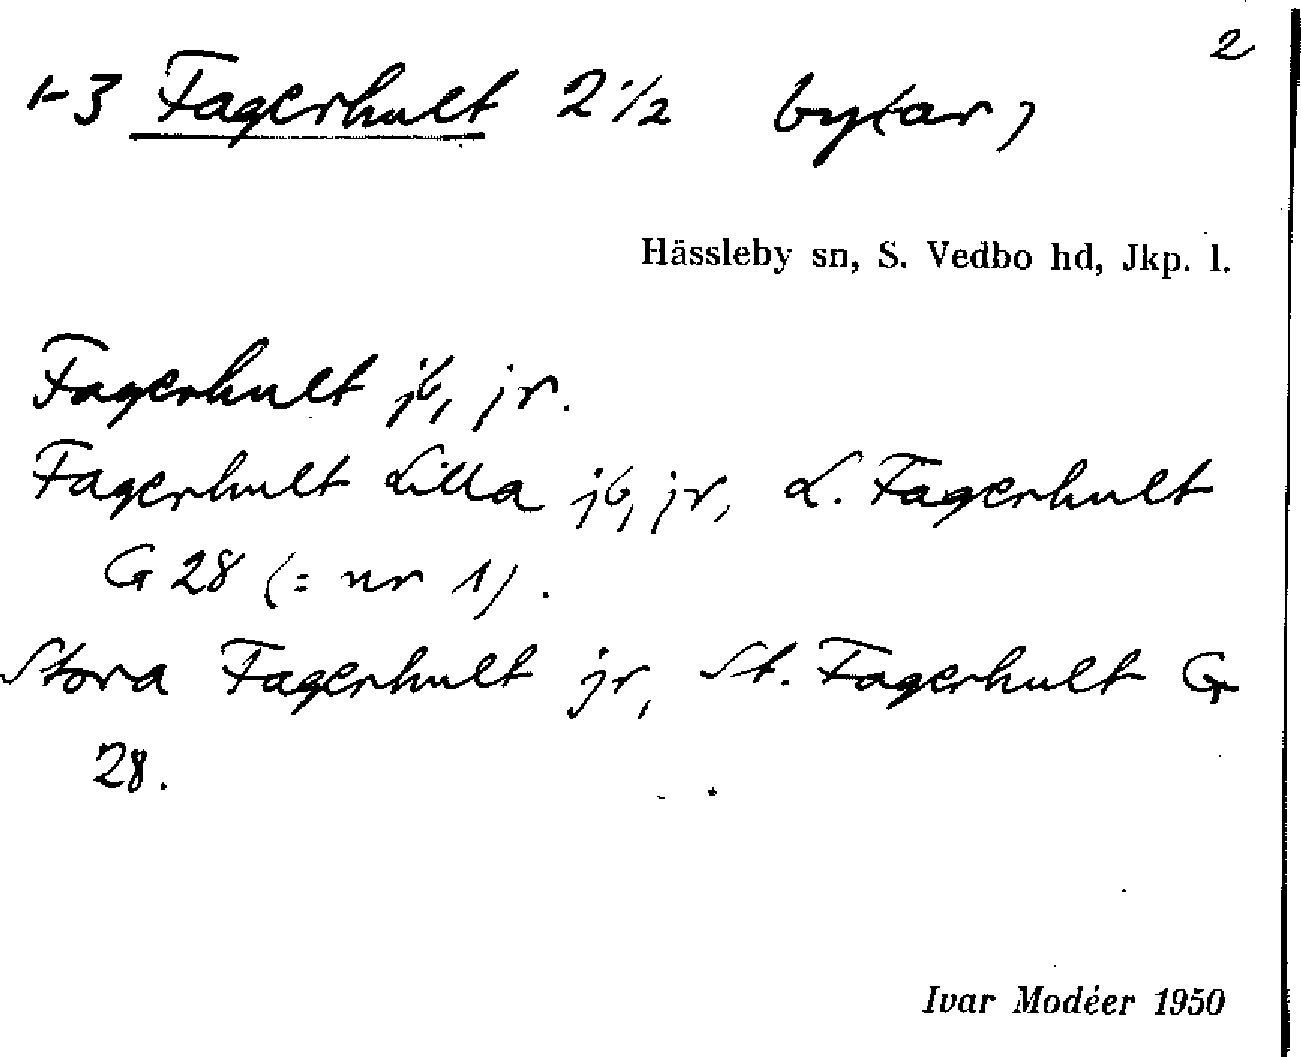 2
1-3 Fagerhult 2 1/2 by(ar)
Hässleby sn, S. Vedbo hd, Jkp. l.
Fagerhult jb, jr.
Fagerhult Lilla jb, jr, L. Fagerhult
G 28 (= nr 1).
Stora Fagerhult jr, St. Fagerhult G
28.
Ivar Modéer 1950